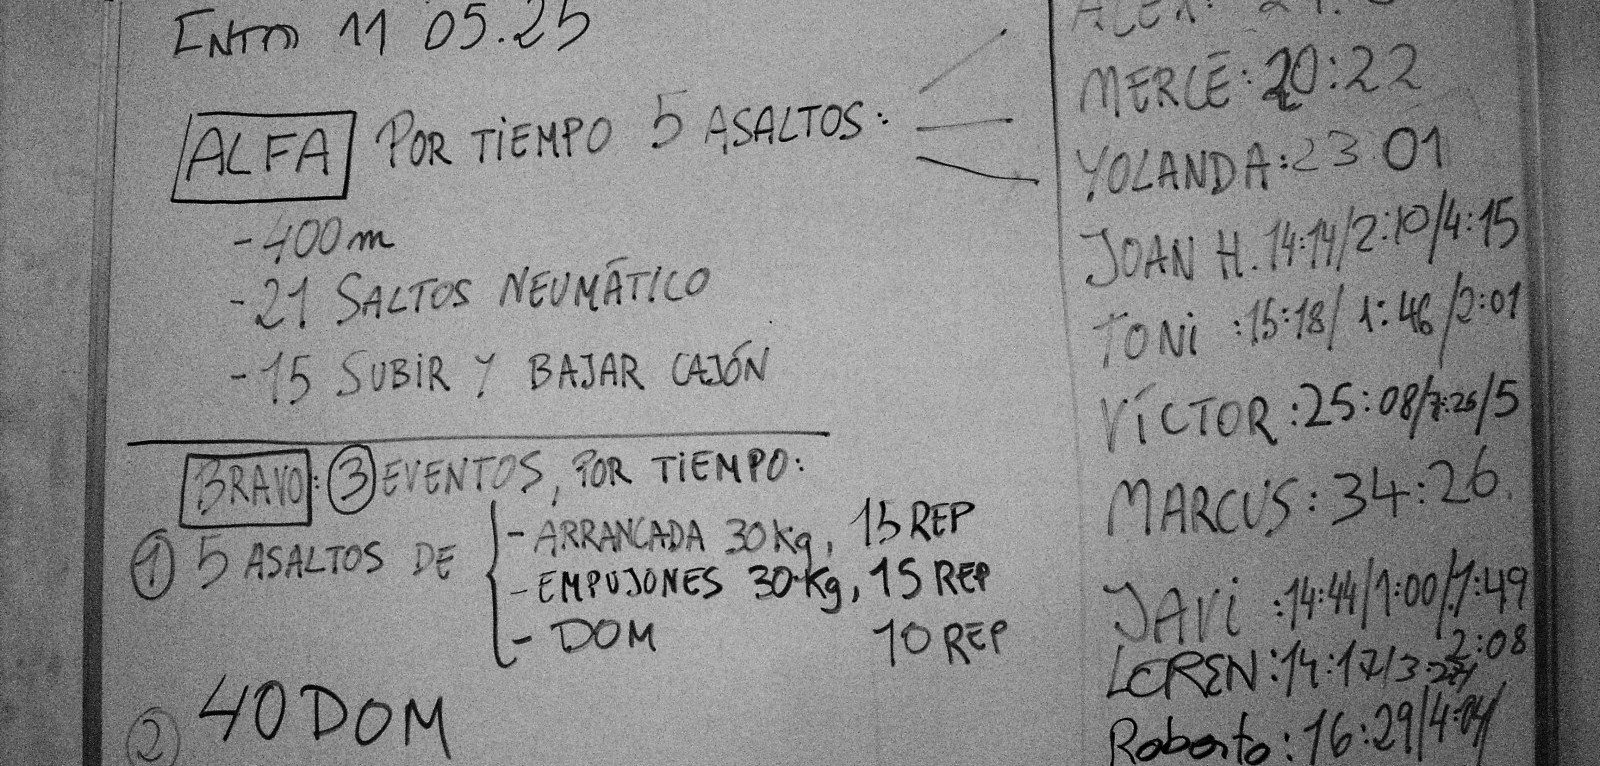 ENTTO 11 05.25
ALFA POR TIEMPO 5 ASALTOS:
-400m
-21 SALTOS NEUMÁTICO
-15 SUBIR Y BAJAR CAJÓN
BRAVO: 3 EVENTOS, POR TIEMPO:
1 5 ASALTOS DE
- ARRANCADA 30kg, 15 REP
- EMPUJONES 30kg, 15 REP
- DOM 10 REP
2 40 DOM
ALEX:
MERCÈ: 20:22
YOLANDA: 23 01
JOAN H. 14:14/2:10/4:15
TONI :15:18/ 1:46/2:01
VÍCTOR :25:08/7:26/5
MARCUS: 34:26
JAVI :14:44/1:00/1:49
2:08
LOREN:14:17/3:27/
Roberto: 16:29/4:04/